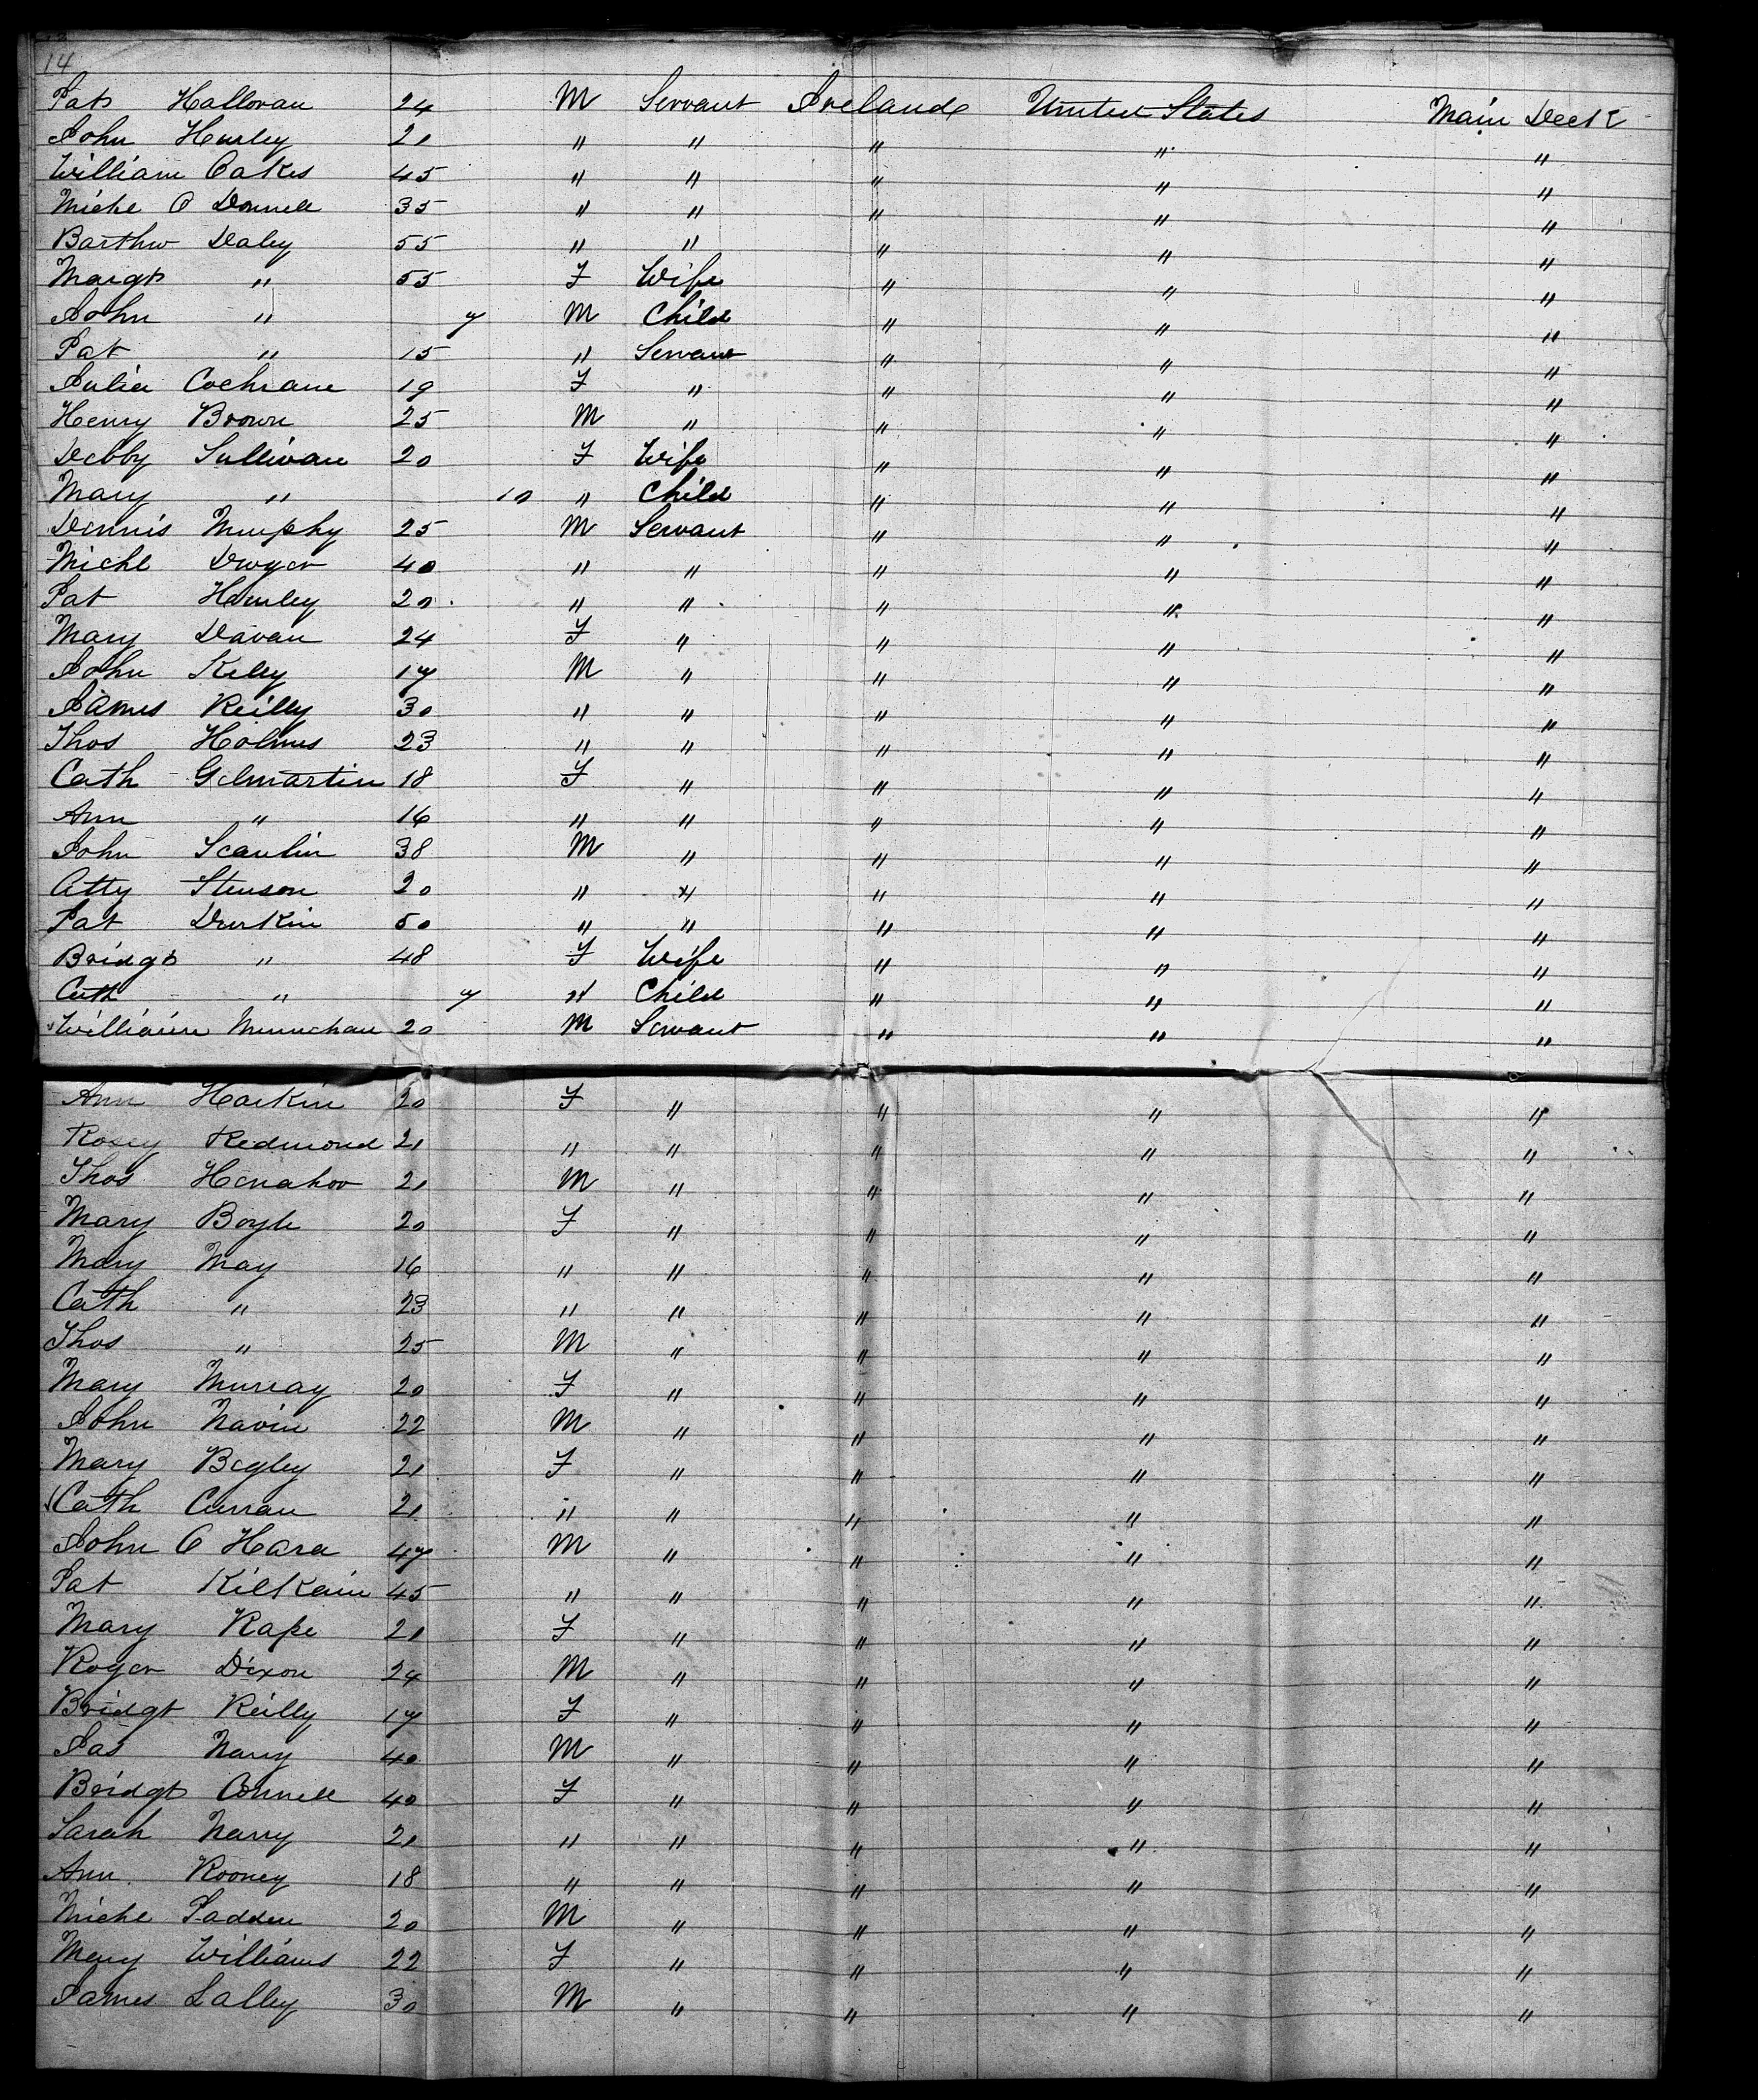 14
Pat Halloran 24 M Servant Ireland United States Main Deck
John Hurley 21 M " " " " "
William Oakes 45 " " " " "
Michl O Donnell 35 " " " " "
Barthw Daley 55 " " " " "
Margt " 55 F Wife " " "
John " 7 M Child " " "
Pat " 15 " Servant " " "
Julia Cochrane 19 F " " " "
Henry Brown 25 M " " " "
Debby Sullivan 20 F Wife " " "
Mary " 10 " Child " " "
Dennis Murphy 25 M Servant " " "
Michl Dwyer 40 " " " " "
Pat Hurley 20 " " " " "
Mary Davan 24 F " " " "
John Kiley 17 M " " " "
James Reilly 30 " " " " "
Thos Holmes 23 " " " " "
Cath Gilmartin 18 F " " " "
Ann " 16 " " " " "
John Scanlin 38 M " " " "
Atty Stenson 20 " " " " "
Pat Durkin 50 " " " " "
Bridgt " 48 F Wife " " "
Cath " 7 " Child " " "
William Minnehan 20 M Servant " " "
Ann Harkin 20 F " " " "
Rosey Redmond 21 " " " " "
Thos Henahov 21 M " " " "
Mary Boyle 20 F " " " "
Mary May 16 " " " " "
Cath " 23 " " " " "
Thos " 25 M " " " "
Mary Murray 20 F " " " "
John Navin 22 M " " " "
Mary Begley 21 F " " " "
Cath Curran 21 " " " " "
John O Hara 47 M " " " "
Pat Kilkain 45 " " " " "
Mary Rape 21 F " " " "
Roger Dixon 24 M " " " "
Bridgt Reilly 17 F " " " "
Jas Narry 40 M " " " "
Bridgt Connell 40 F " " " "
Sarah Narry 21 " " " " "
Ann Rooney 18 " " " " "
Michl Padden 20 M " " " "
Mary Williams 22 F " " " "
James Lalley 30 M " " " "